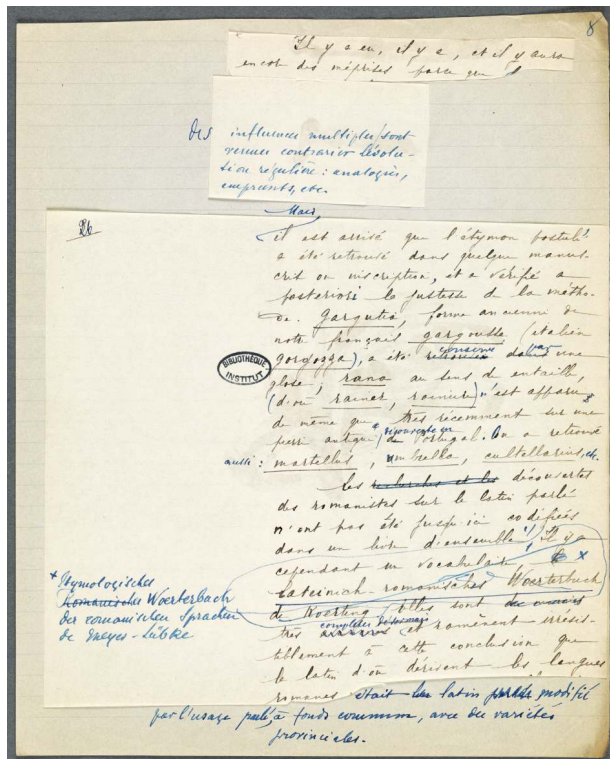 8
Il y a eu, il y a, et il y aura
encor des méprises parce que
des influences multiples sont
venues contrarier l'évolu-
tion régulière : analogies,
emprunts, etc.
Mais,
26
il est arrivé que l'étymon postulé
a été retrouvé dans quelque manus-
crit ou inscription, et a vérifié a
posteriori la justesse de la métho-
de. Gargutia, forme ancienne de
notre français gargousse (italien
conservé par
gorgozza), a été retrouvé dans une
BIBLIOTHÈQUE
INSTITUT
glose ; rana au sens de entaille,
(d'où rainer, rainure) n'est apparu
de même que très récemment sur une
découverte en
pierre antique, de Portugal. On a retrouvé
aussi : martellus, umbella, cultellarius, etc.
Les recherches et les découvertes
des romanistes sur le latin parlé
n'ont pas été jusqu'ici codifiées
dans un livre d'ensemble. Il y a
cependant un vocabulaire x
Lateinisch-romanisches Woerterbuch
de Koerting. Elles sont
complètes désormais
très et ramènent irrésis-
tiblement à cette conclusion que
le latin d'où dérivent les langues
romanes était un latin modifié
par l'usage parlé, à fonds commun, avec des variétés
provinciales.
x Etymologisches
Romanisches Woerterbuch
der romanischen Sprachen
de Meyer-Lübke